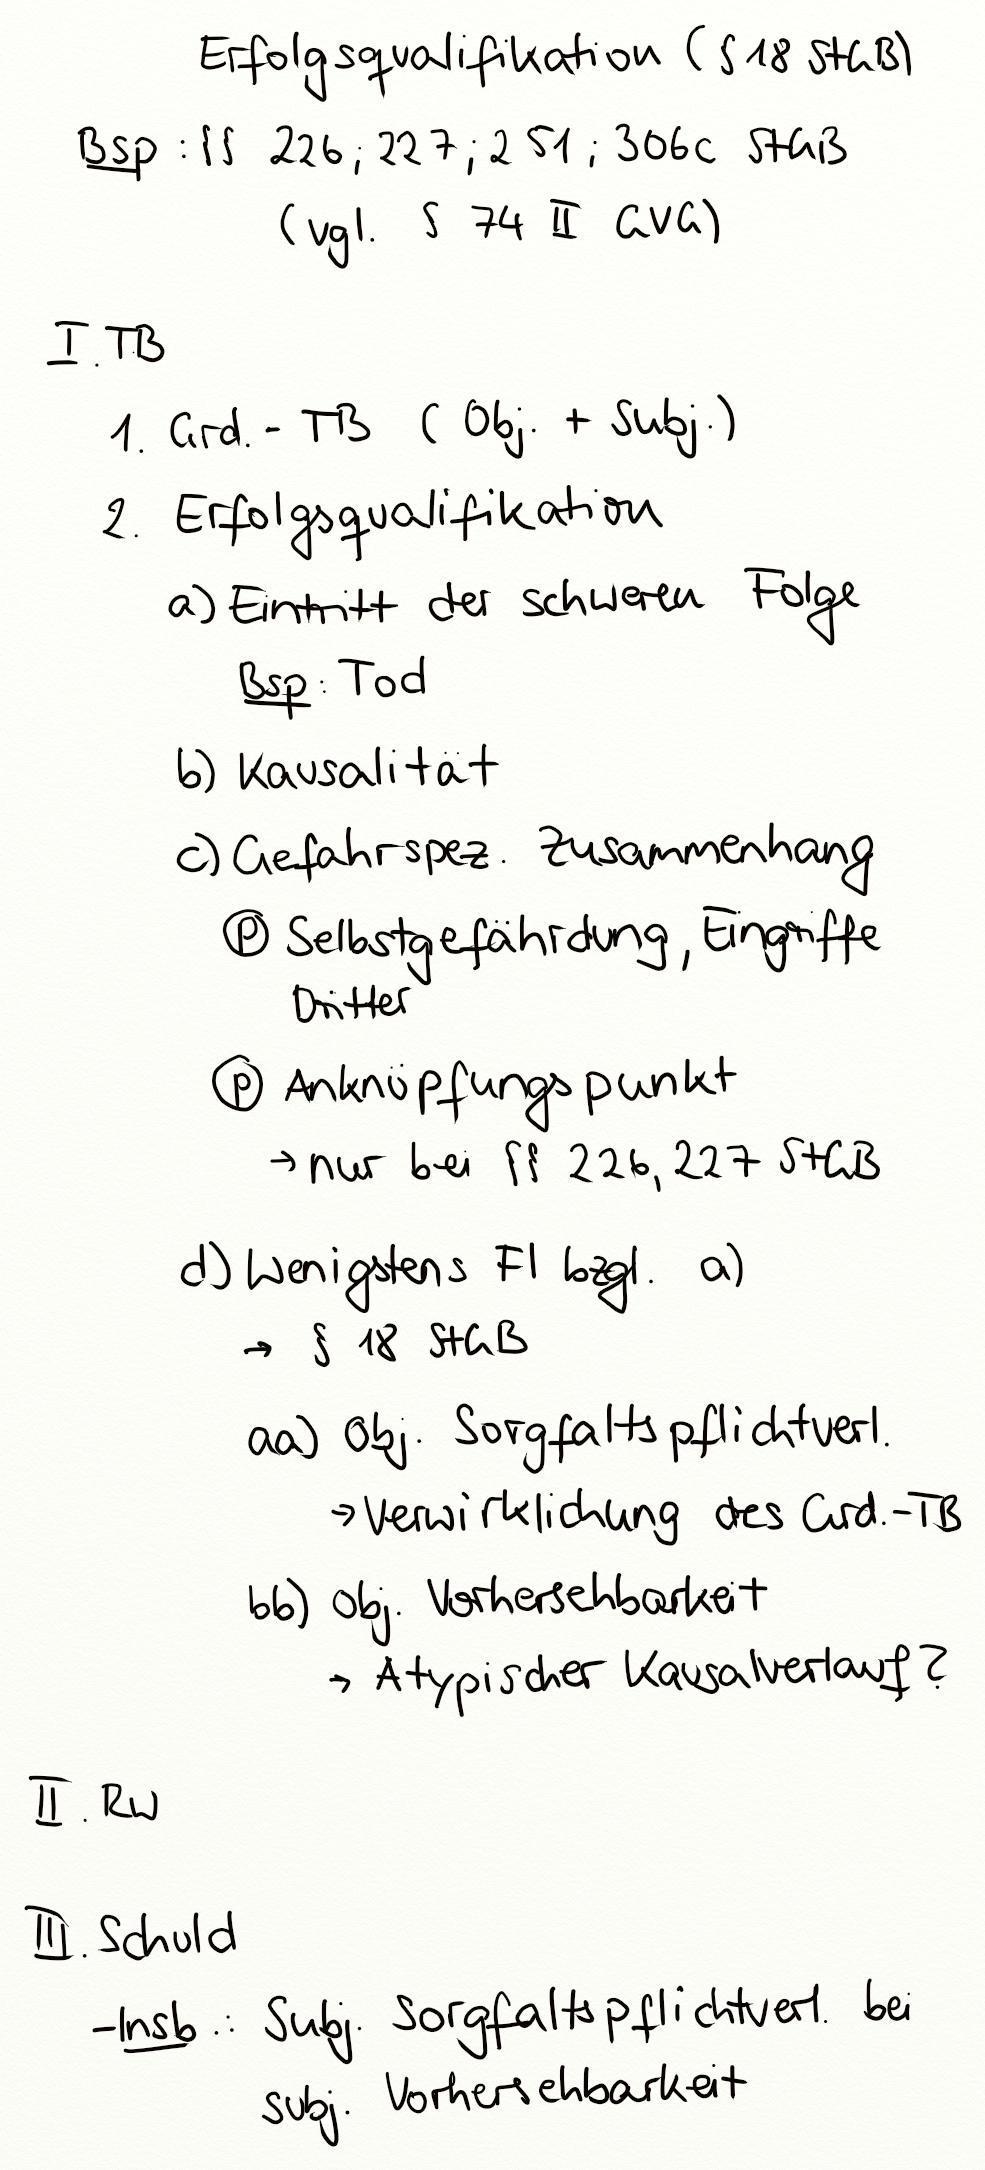 Erfolgsqualifikation (§ 18 StGB)
Bsp: §§ 226; 227; 251; 306c StGB
(vgl. § 74 II GVG)
I. TB
1. Grd.-TB (Obj. + Subj.)
2. Erfolgsqualifikation
a) Eintritt der schweren Folge
Bsp: Tod
b) Kausalität
c) Gefahrspez. Zusammenhang
Ⓟ Selbstgefährdung, Eingriffe
Dritter
Ⓟ Anknüpfungspunkt
→ nur bei §§ 226, 227 StGB
d) Wenigstens Fl bzgl. a)
→ § 18 StGB
aa) Obj. Sorgfaltspflichtverl.
→ Verwirklichung des Grd.-TB
bb) Obj. Vorhersehbarkeit
→ Atypischer Kausalverlauf?
II. RW
III. Schuld
- Insb.: Subj. Sorgfaltspflichtverl. bei
subj. Vorhersehbarkeit